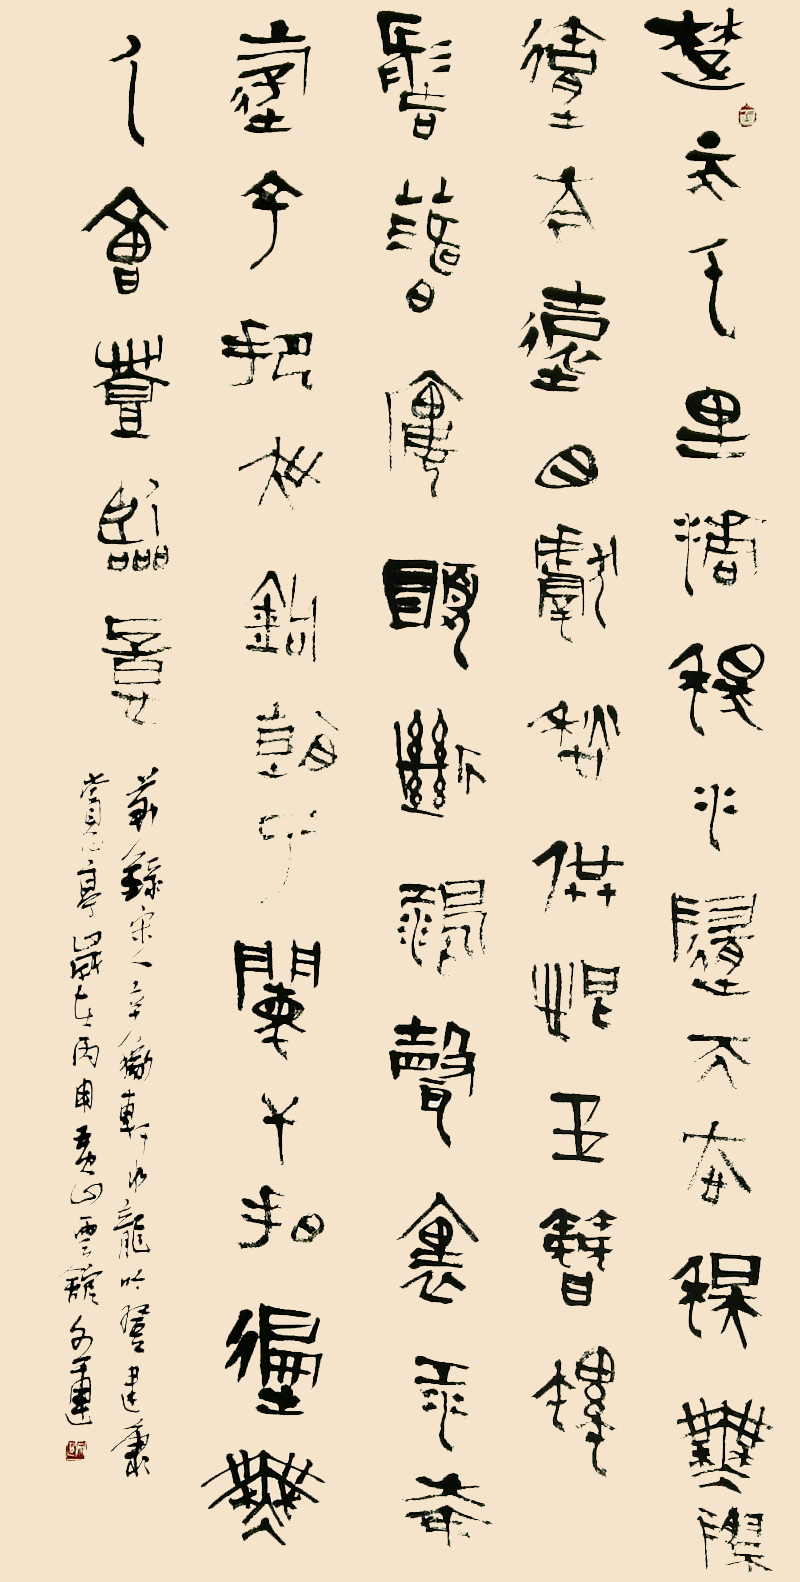 楚天千里清秋水隨天去秋無際
遙岑遠目獻愁供恨玉簪螺
髻落日樓頭斷鴻聲裏江南
遊子把吳鉤看了闌干拍遍無
人會登臨意
節錄宋人辛稼軒水龍吟登建康
賞心亭歲在丙申黃山雲